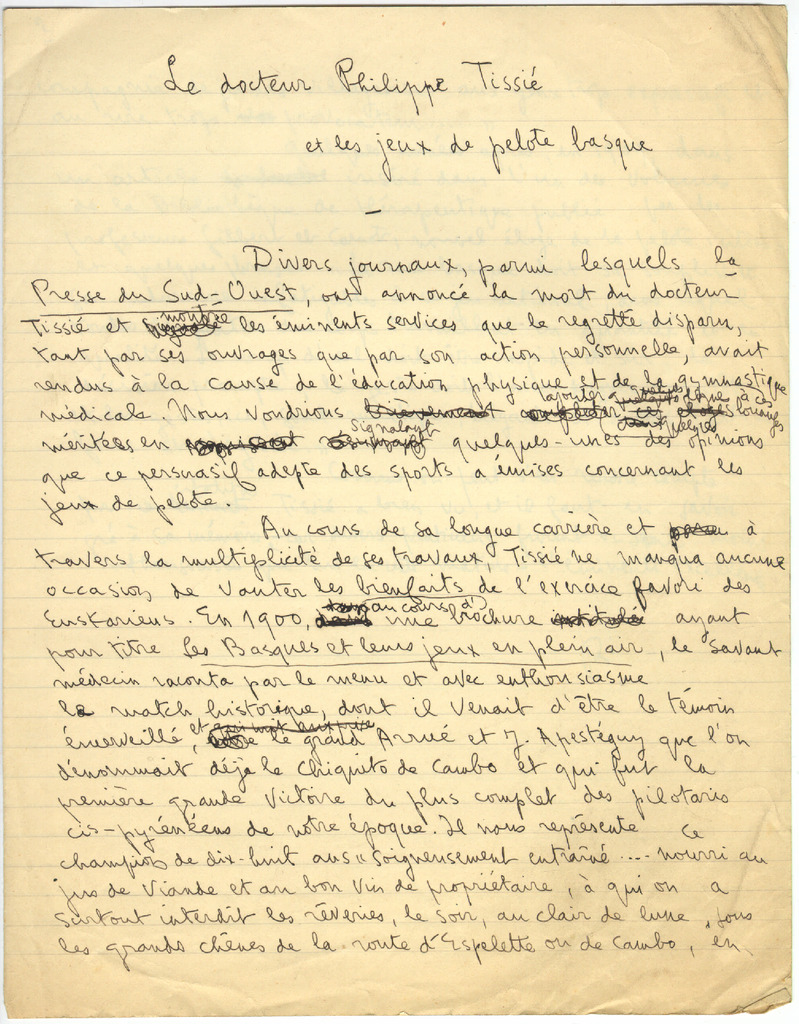 Le docteur Philippe Tissié
et les jeux de pelote basque
—
Divers journaux, parmi lesquels la
Presse du Sud-Ouest, ont annoncé la mort du docteur
Tissié et montré les éminents services que le regretté disparu,
tant par ses ouvrages que par son action personnelle, avait
rendus à la cause de l'éducation physique et de la gymnastique
médicale. Nous voudrions ajouter quelque chose à ces louanges
méritées en signalant quelques-unes des opinions
que ce persuasif adepte des sports a émises concernant les
jeux de pelote.
Au cours de sa longue carrière et à
travers la multiplicité de ses travaux, Tissié ne manqua aucune
occasion de vanter les bienfaits de l'exercice favori des
Euskariens. En 1900, au cours d'une brochure ayant
pour titre Les Basques et leurs jeux en plein air, le savant
médecin raconta par le menu et avec enthousiasme
le match historique, dont il venait d'être le témoin
émerveillé, et le grand Arrué et J. Apestéguy que l'on
dénommait déjà le Chiquito de Cambo et qui fut la
première grande victoire du plus complet des pilotaris
cis-pyrénéens de notre époque. Il nous représente ce
champion de dix-huit ans « soigneusement entraîné .... nourri au
jus de viande et au bon vin de propriétaire, à qui on a
surtout interdit les rêveries, le soir, au clair de lune, sous
les grands chênes de la route d'Espelette ou de Cambo, en